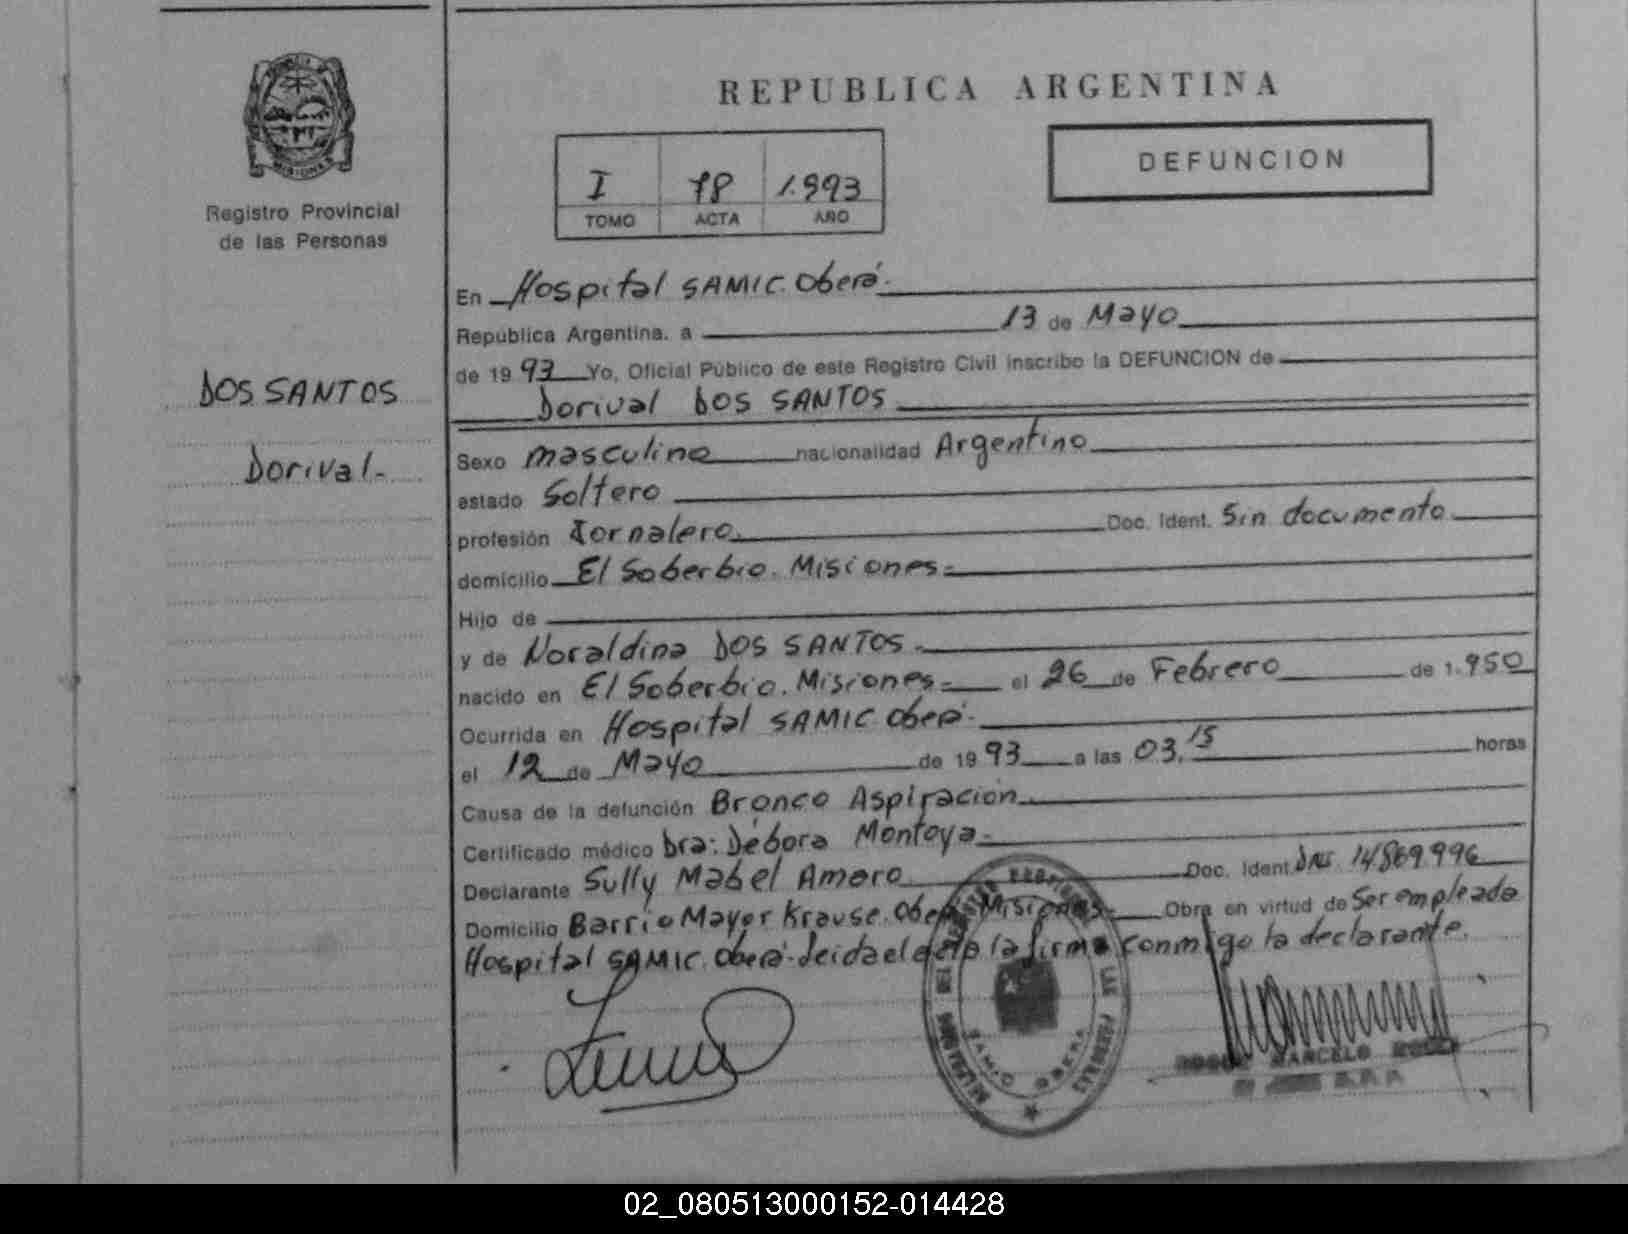 REPUBLICA ARGENTINA
DEFUNCION
I 78 1.993
TOMO ACTA AÑO
MISIONES
Registro Provincial
de las Personas
DOS SANTOS
Dorival-
En Hospital SAMIC. Oberá.
Republica Argentina. a 13 de Mayo
de 19 93 Yo, Oficial Público de este Registro Civil inscribo la DEFUNCION de
Dorival DOS SANTOS
Sexo masculino nacionalidad Argentino
estado Soltero
profesión Jornalero. Doc. Ident. Sin documento
domicilio El Soberbio. Misiones=
Hijo de
y de Noraldina DOS SANTOS.
nacido en El Soberbio. Misiones= el 26 de Febrero de 1.950
Ocurrida en Hospital SAMIC. Oberá.
el 12 de Mayo de 19 93 a las 03,15 horas
Causa de la defunción Bronco Aspiración.
Certificado médico Dra: Débora Montoya=
Declarante Sully Mabel Amaro Doc. Ident DNI. 14.869.996
Domicilio Barrio Mayor Krause. Oberá Misiones. Obra en virtud de Ser empleada
Hospital SAMIC. Oberá. Leida el acta la firma conmigo la declarante.
MARCELO
02_080513000152-014428